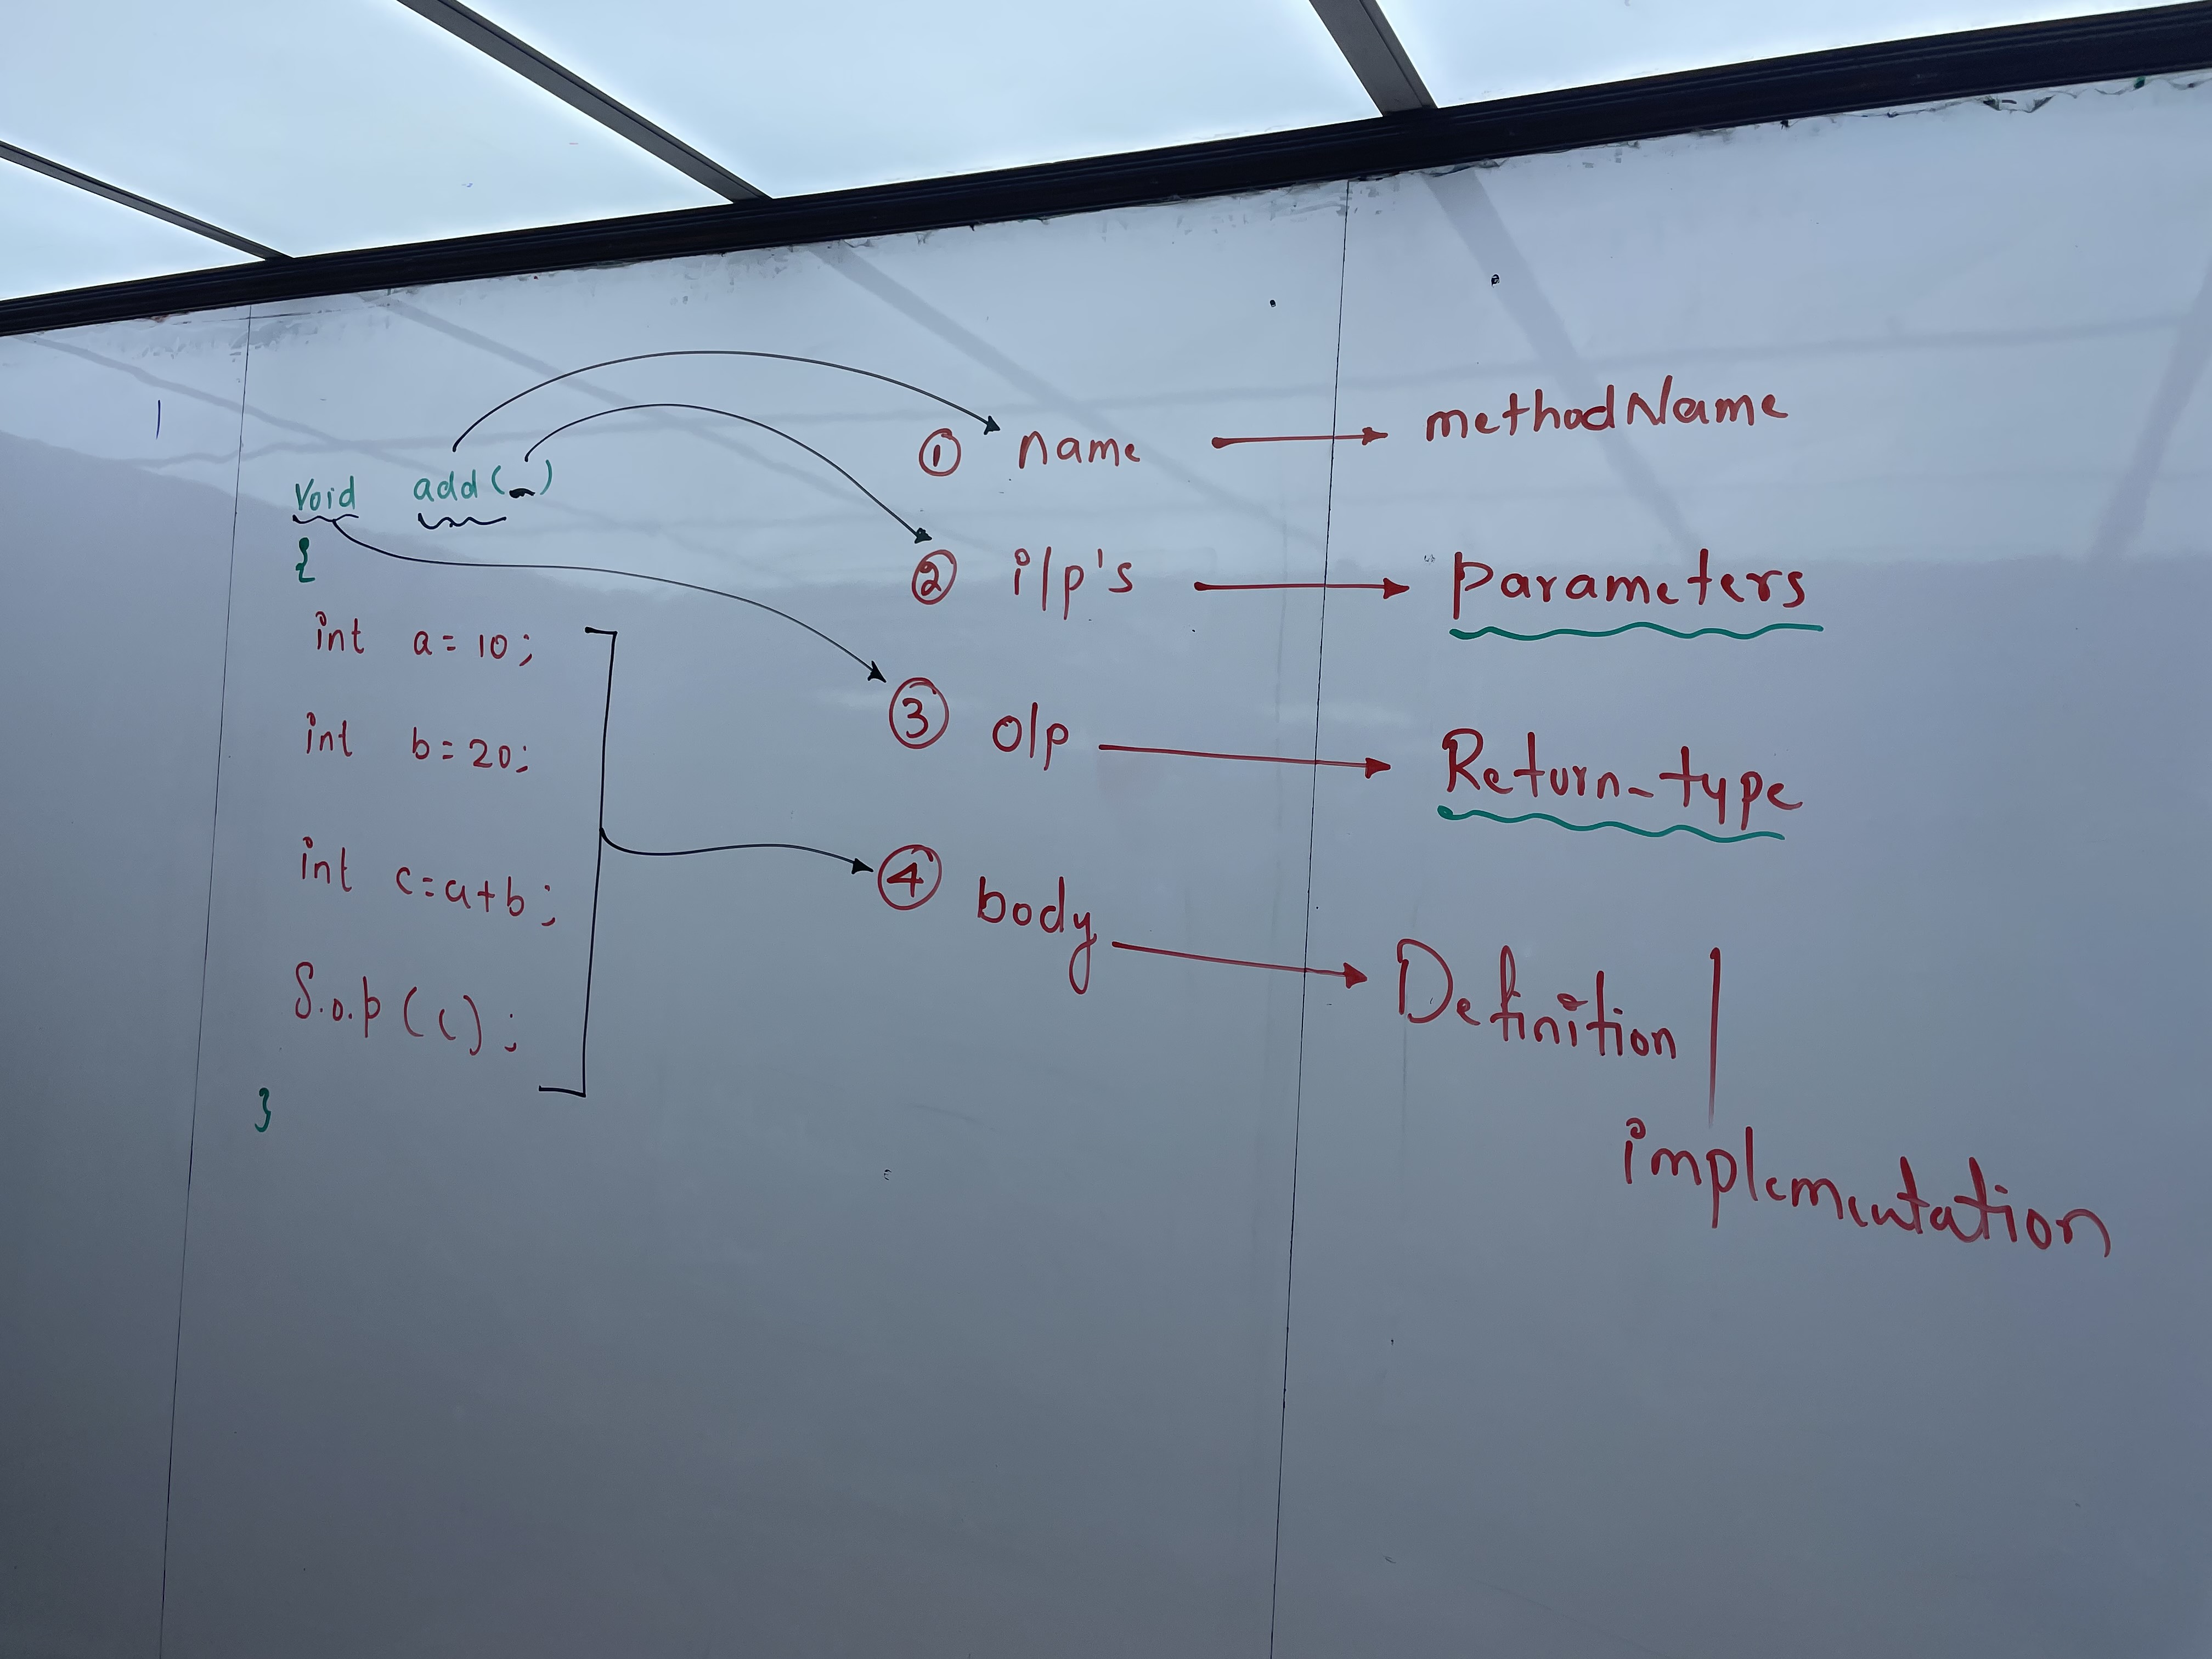 Void add(_)
{
int a = 10;
int b = 20;
int c = a + b;
S.o.p(c);
}
① name → methodName
② i/p's → Parameters
③ o/p → Return-type
④ body → Definition |
implementation